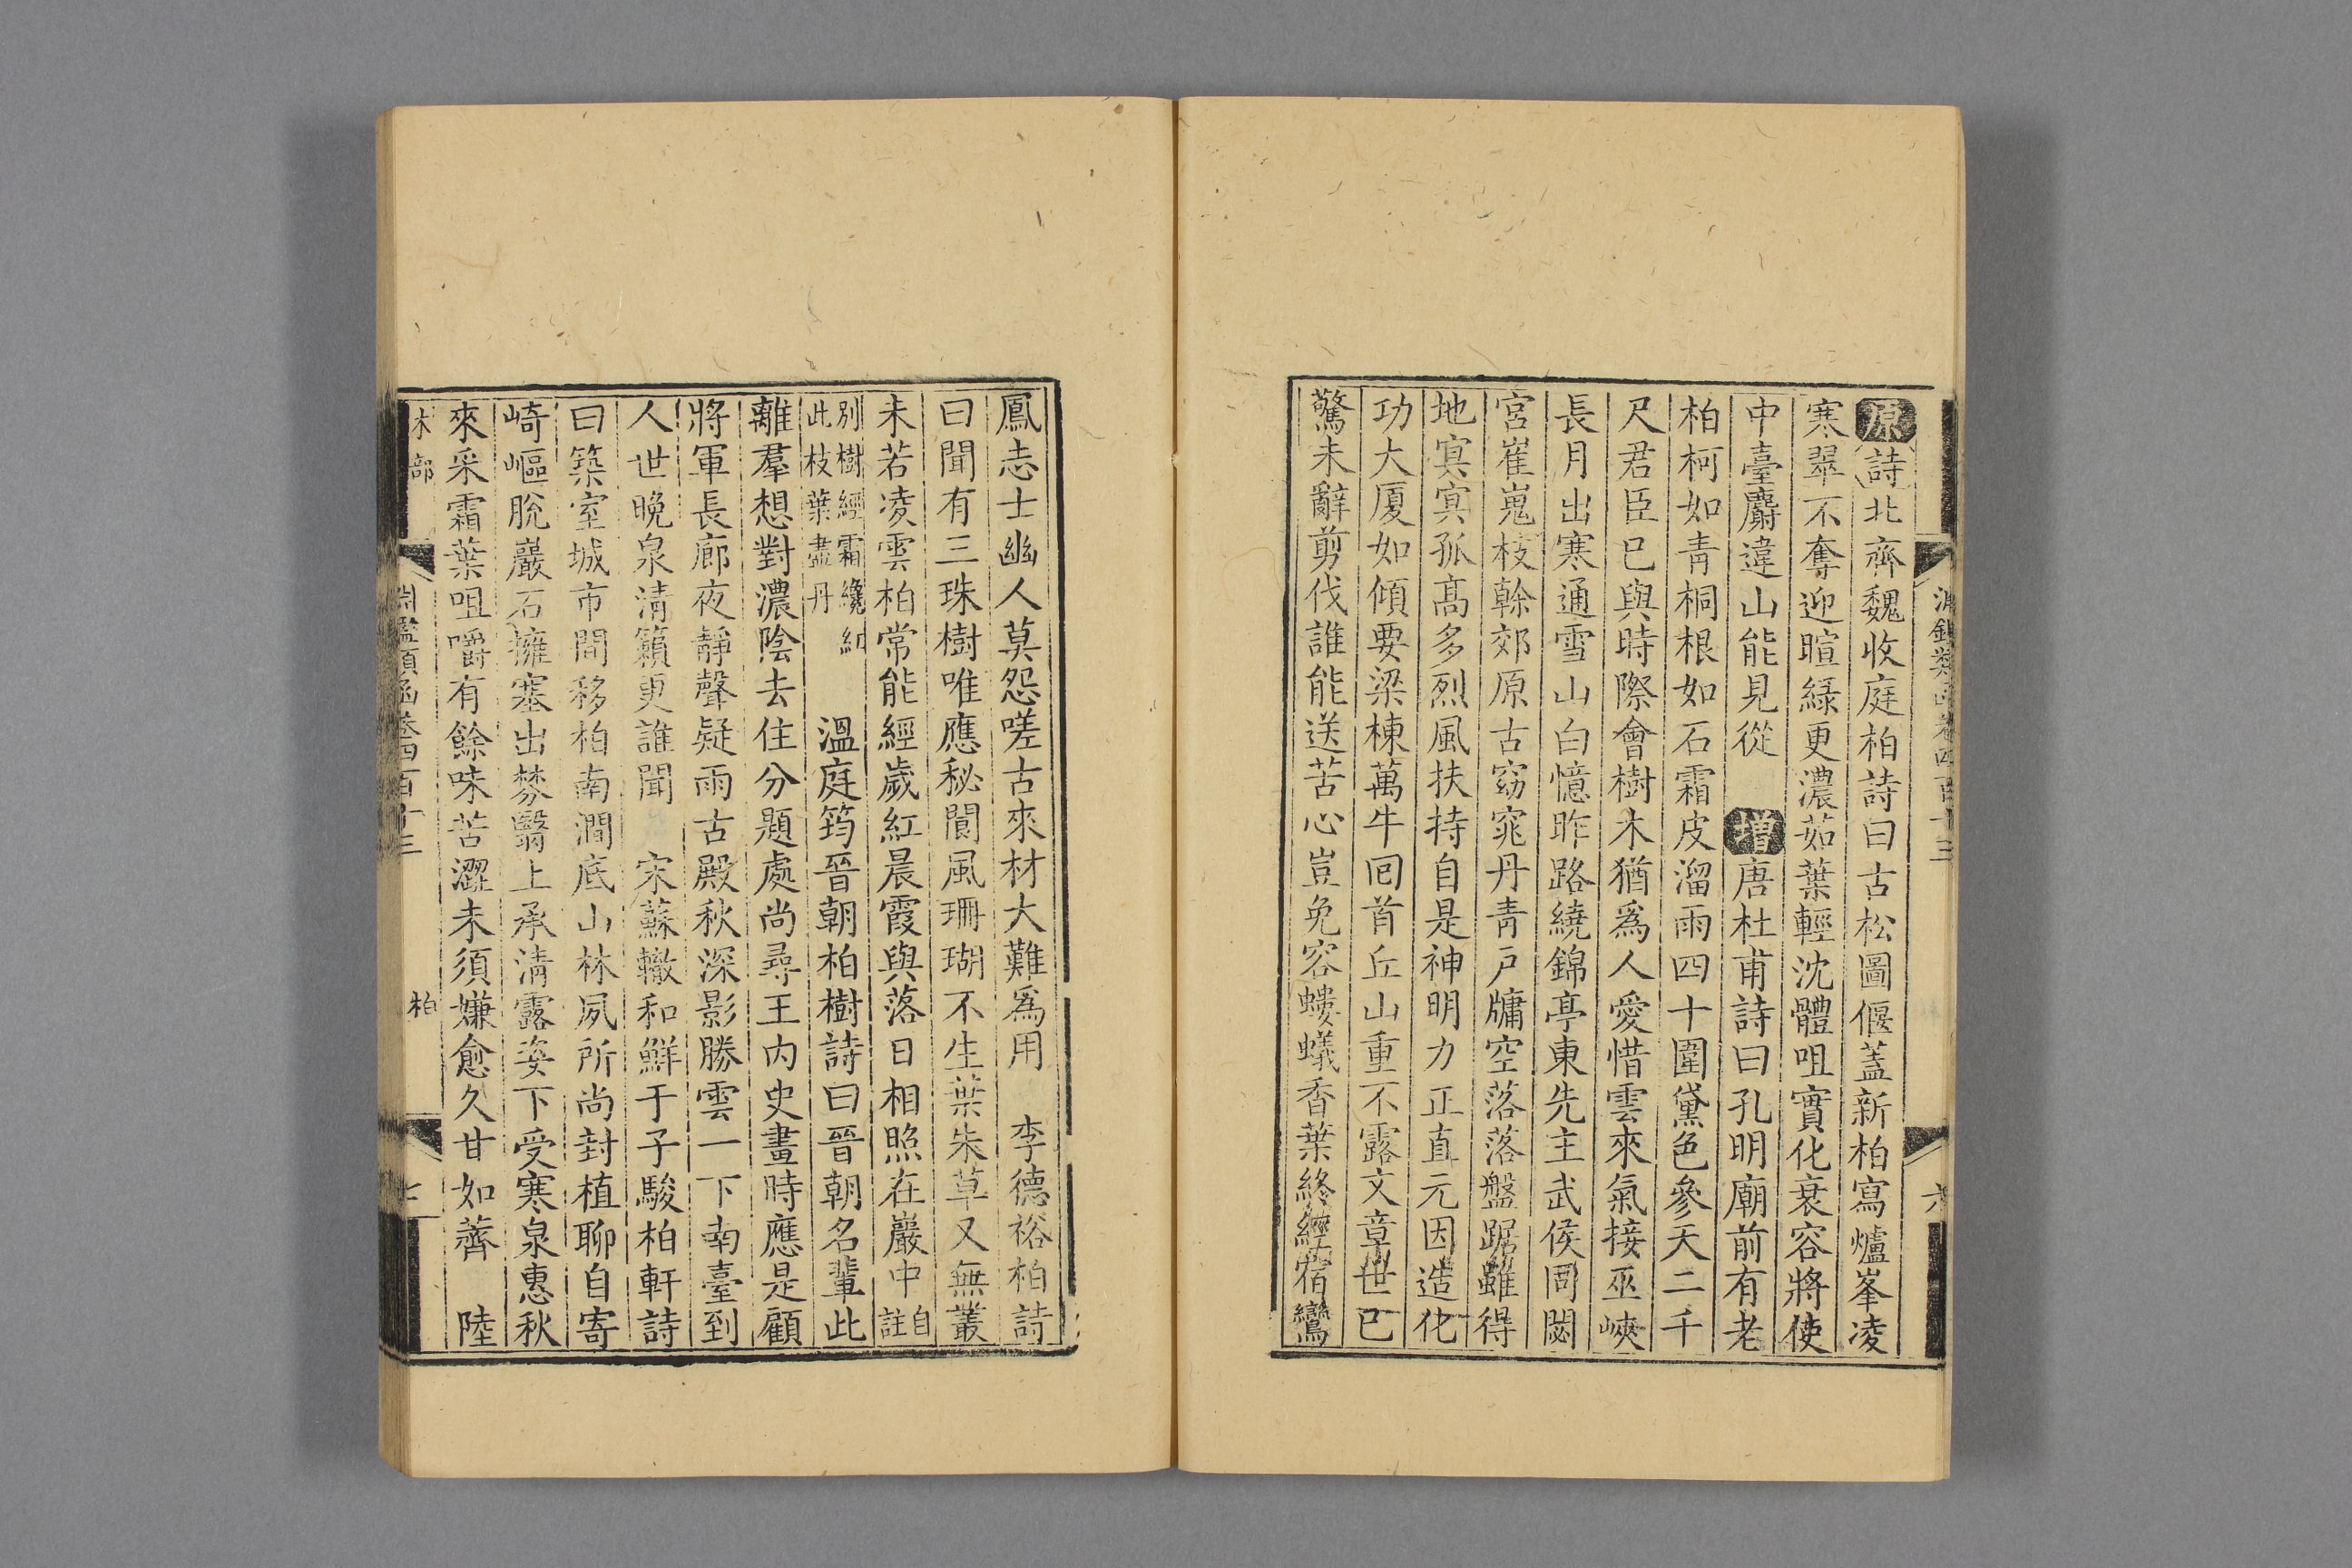 原詩北齊魏收庭柏詩曰古松圖偃蓋新柏寫爐峯凌
寒翠不奪迎暄綠更濃茹葉輕沈體咀實化衰容將使
中臺麝違山能見從 增唐杜甫詩曰孔明廟前有老
柏柯如青桐根如石霜皮溜雨四十圍黛色參天二千
尺君臣已與時際會樹木猶爲人愛惜雲來氣接巫峽
長月出寒通雪山白憶昨路繞錦亭東先主武侯同閟
宮崔嵬枝榦郊原古窈窕丹青戸牖空落落盤踞雖得
地冥冥孤髙多烈風扶持自是神明力正直元因造化
功大厦如傾要梁棟萬牛囘首丘山重不露文章世已
驚未辭剪伐誰能送苦心豈免容螻蟻香葉終經宿鸞
淵鑑類函卷四百十三
六
鳳志士幽人莫怨嗟古來材大難爲用 李德裕柏詩
曰聞有三珠樹唯應秘閬風珊瑚不生葉朱草又無叢
未若凌雲柏常能經歲紅晨霞與落日相照在巖中自註
別樹經霜纔紅
此枝葉盡丹
溫庭筠晉朝柏樹詩曰晉朝名輩此
離羣想對濃陰去住分題處尚尋王内史畫時應是顧
將軍長廊夜靜聲疑雨古殿秋深影勝雲一下南臺到
人世晚泉清籟更誰聞 宋蘇轍和鮮于子駿柏軒詩
曰築室城市間移柏南澗底山林夙所尚封植聊自寄
崎嶇脫巖石擁塞出棼翳上承清露姿下受寒泉惠秋
來采霜葉咀嚼有餘味苦澀未須嫌愈久甘如薺 陸
木部
淵鑑類函卷四百十三
柏
七